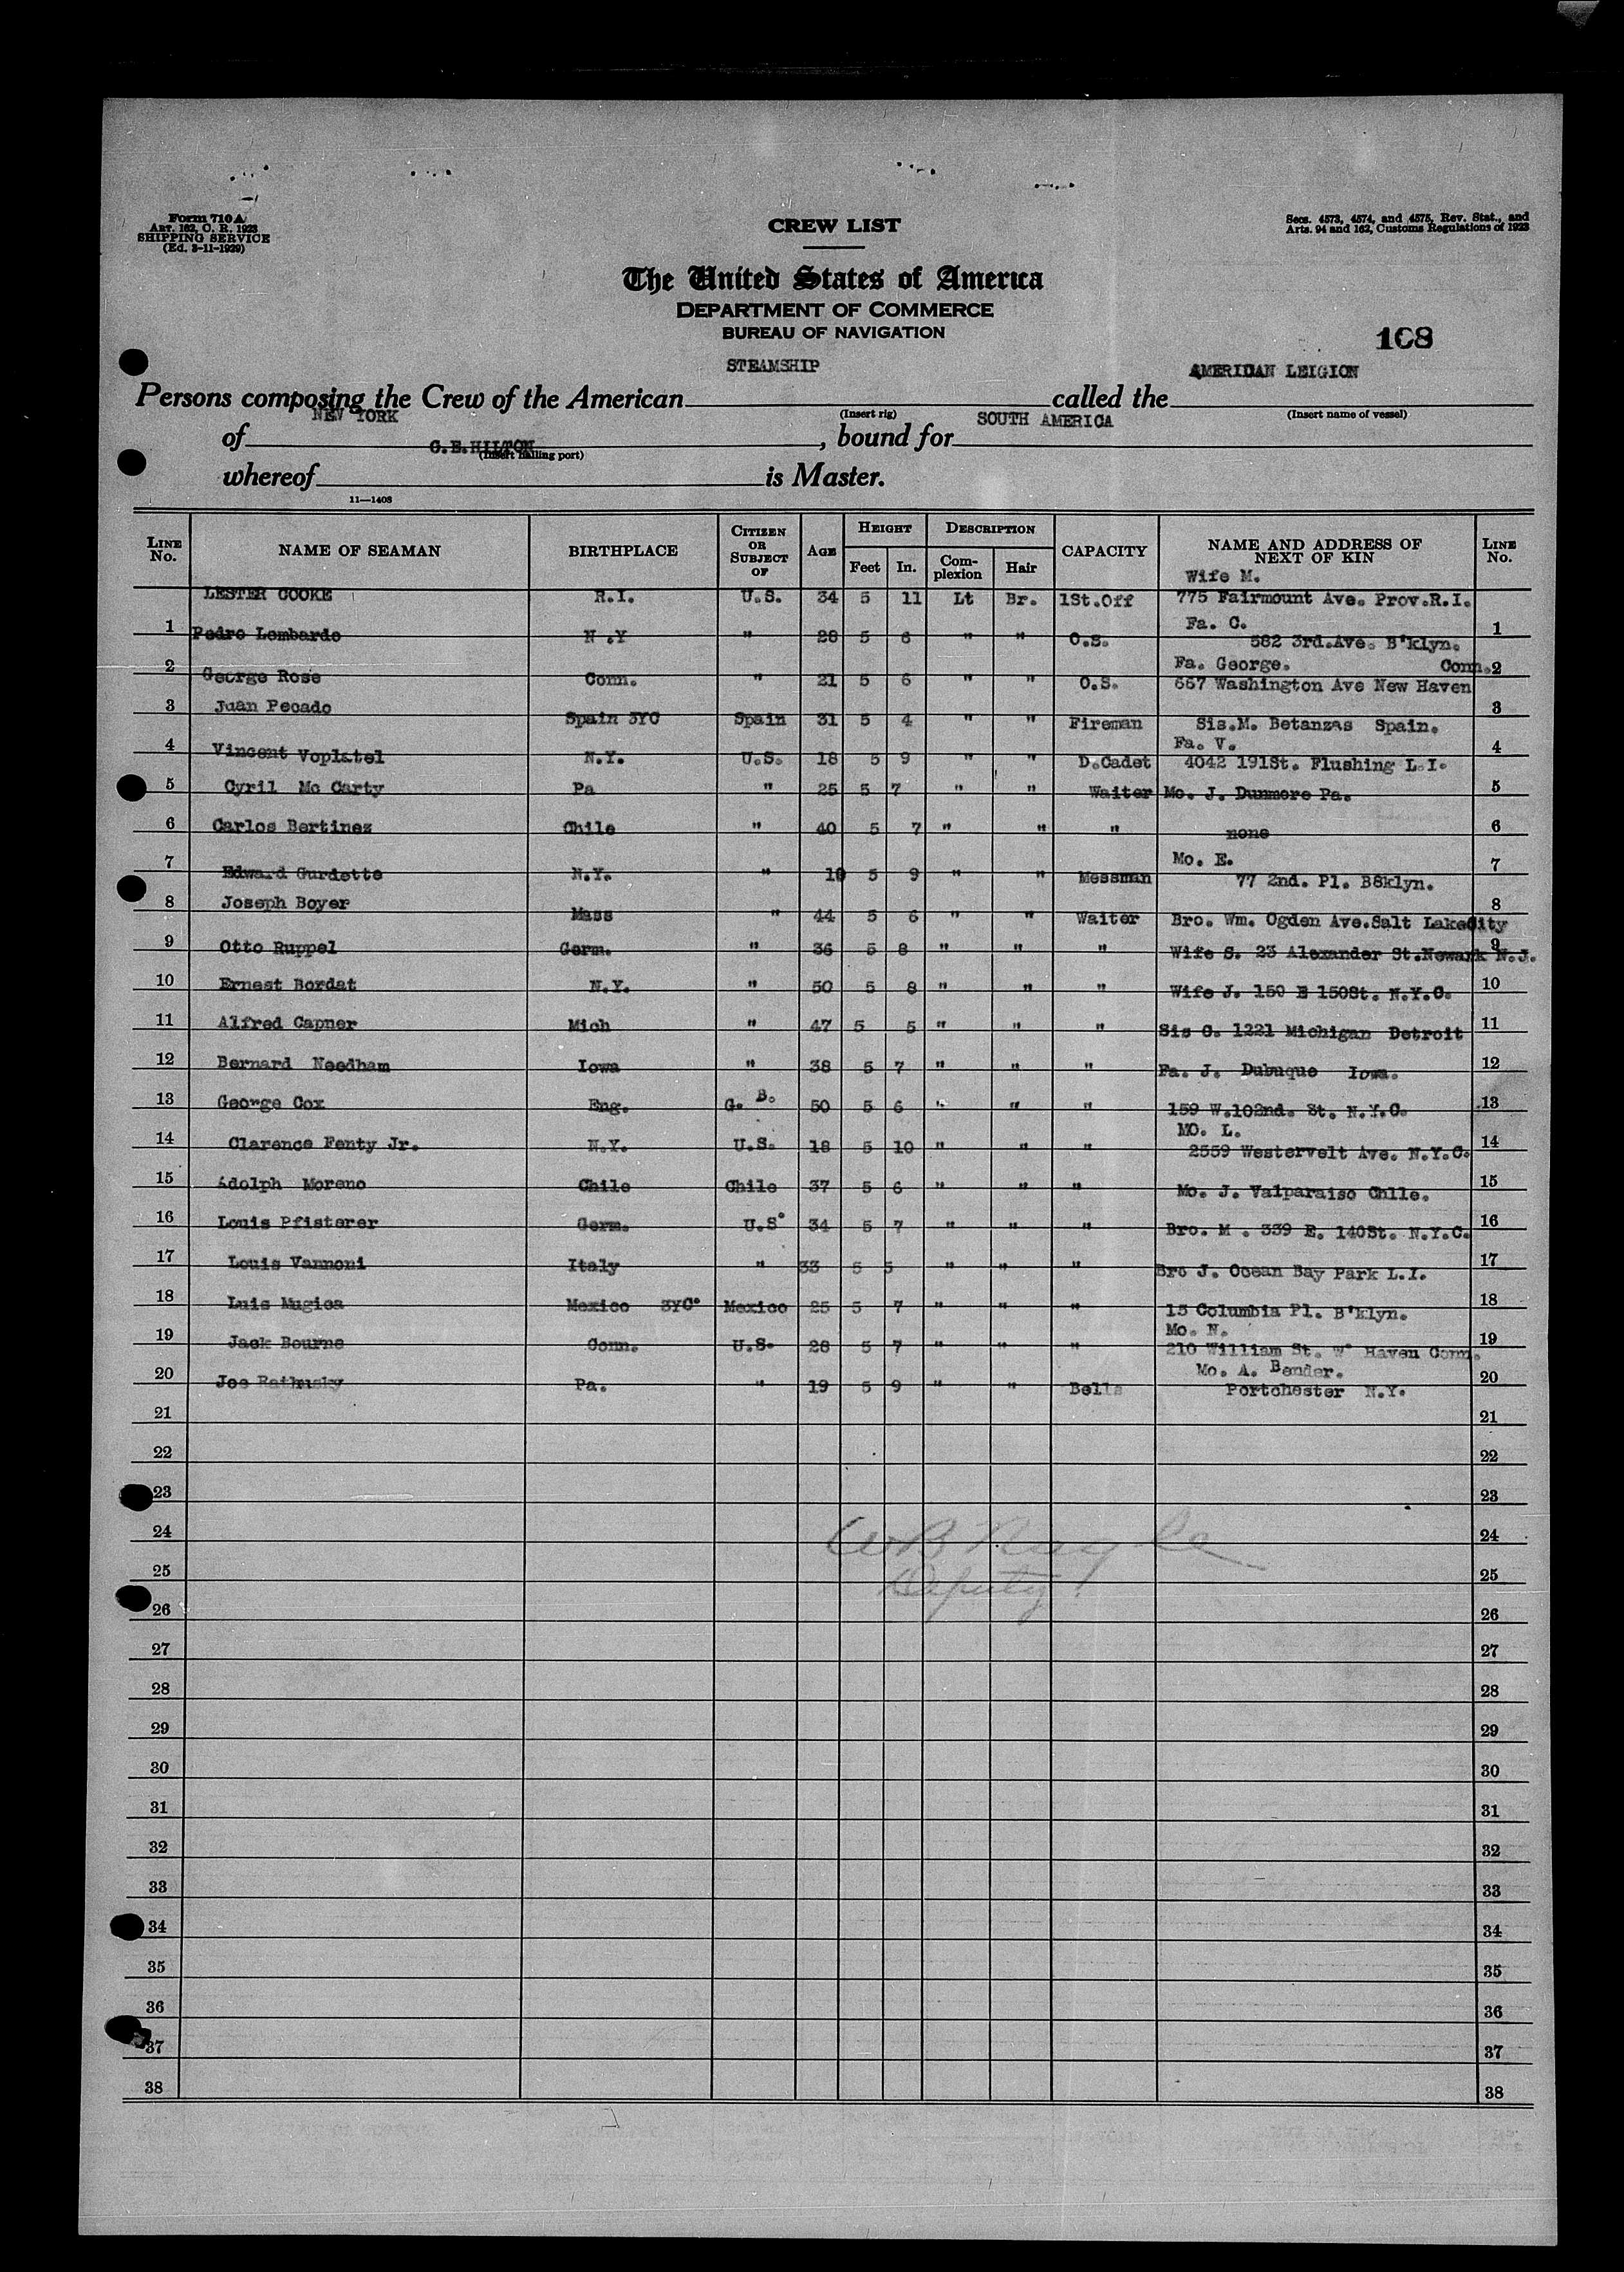 Form 710 A
Art. 162, C. R. 1923
SHIPPING SERVICE
(Ed. 3-11-1929)
CREW LIST
Secs. 4573, 4574, and 4575, Rev. Stat., and
Arts. 94 and 162, Customs Regulations of 1923
The United States of America
DEPARTMENT OF COMMERCE
BUREAU OF NAVIGATION
108
STEAMSHIP AMERICAN LEIGION
Persons composing the Crew of the American called the
(Insert rig) (Insert name of vessel)
NEW YORK SOUTH AMERICA
of , bound for
(Insert hailing port)
HILTON
whereof is Master.
11—1408
LINE No. NAME OF SEAMAN BIRTHPLACE CITIZEN OR SUBJECT OF AGE HEIGHT Feet In. DESCRIPTION Complexion Hair CAPACITY NAME AND ADDRESS OF NEXT OF KIN LINE No.
Wife M.
LESTER COOKE R.I. U.S. 34 5 11 Lt Br. 1St.Off 775 Fairmount Ave. Prov.R.I.
Fa. C.
1 Pedro Lombardo N.Y " 5 6 " " O.S. 582 3rd.Ave. B'klyn. 1
Fa. George. Conn.
2 George Rose Conn. " 21 5 6 " " O.S. 667 Washington Ave New Haven 2
3 Juan Pecado Spain 3YC Spain 31 5 4 " " Fireman Sis.M. Betanzas Spain. 3
Fa. V.
4 Vincent Voplatel N.Y. U.S. 18 5 9 " " D.Cadet 4042 191St. Flushing L.I. 4
5 Cyril Mc Carty Pa " 25 5 7 " " Waiter Mo. J. Dunmore Pa. 5
6 Carlos Bertinez Chile " 40 5 7 " " " none 6
Mo. E.
7 Edward Gurdette N.Y. " 5 9 " " Messman 77 2nd. Pl. B8klyn. 7
8 Joseph Boyer Mass " 44 5 6 " " Waiter Bro. Wm. Ogden Ave.Salt LakeCity 8
9 Otto Ruppel Germ. " 36 5 8 " " " Wife S. 23 Alexander St.Newark N.J. 9
10 Ernest Bordat N.Y. " 50 5 8 " " " Wife J. 150 E 150St. N.Y.C. 10
11 Alfred Capner Mich " 47 5 5 " " " Sis C. 1221 Michigan Detroit 11
12 Bernard Needham Iowa " 38 5 7 " " " Fa. J. Dubuque Iowa. 12
13 George Cox Eng. G. B. 50 5 6 " " " 159 W.102nd. St. N.Y.C. 13
MO. L.
14 Clarence Fenty Jr. N.Y. U.S. 18 5 10 " " " 2559 Westervelt Ave. N.Y.C. 14
15 Adolph Moreno Chile Chile 37 5 6 " " " Mo. J. Valparaiso Chile. 15
16 Louis Pfisterer Germ. U.S. 34 5 7 " " " Bro. M . 339 E. 140St. N.Y.C. 16
17 Louis Vannoni Italy " 33 5 5 " " " Bro J. Ocean Bay Park L.I. 17
18 Luis Mugica Mexico 3YC. Mexico 25 5 7 " " " 15 Columbia Pl. B'klyn. 18
Mo. N.
19 Jack Bourne Conn. U.S. 28 5 7 " " " 210 William St. W. Haven Conn. 19
Mo. A. Bender.
20 Joe Pa. " 19 5 9 " " Bells Portchester N.Y. 20
21 21
22 22
23 23
24 24
25 25
26 26
WB Nagle
Deputy
27 27
28 28
29 29
30 30
31 31
32 32
33 33
34 34
35 35
36 36
37 37
38 38